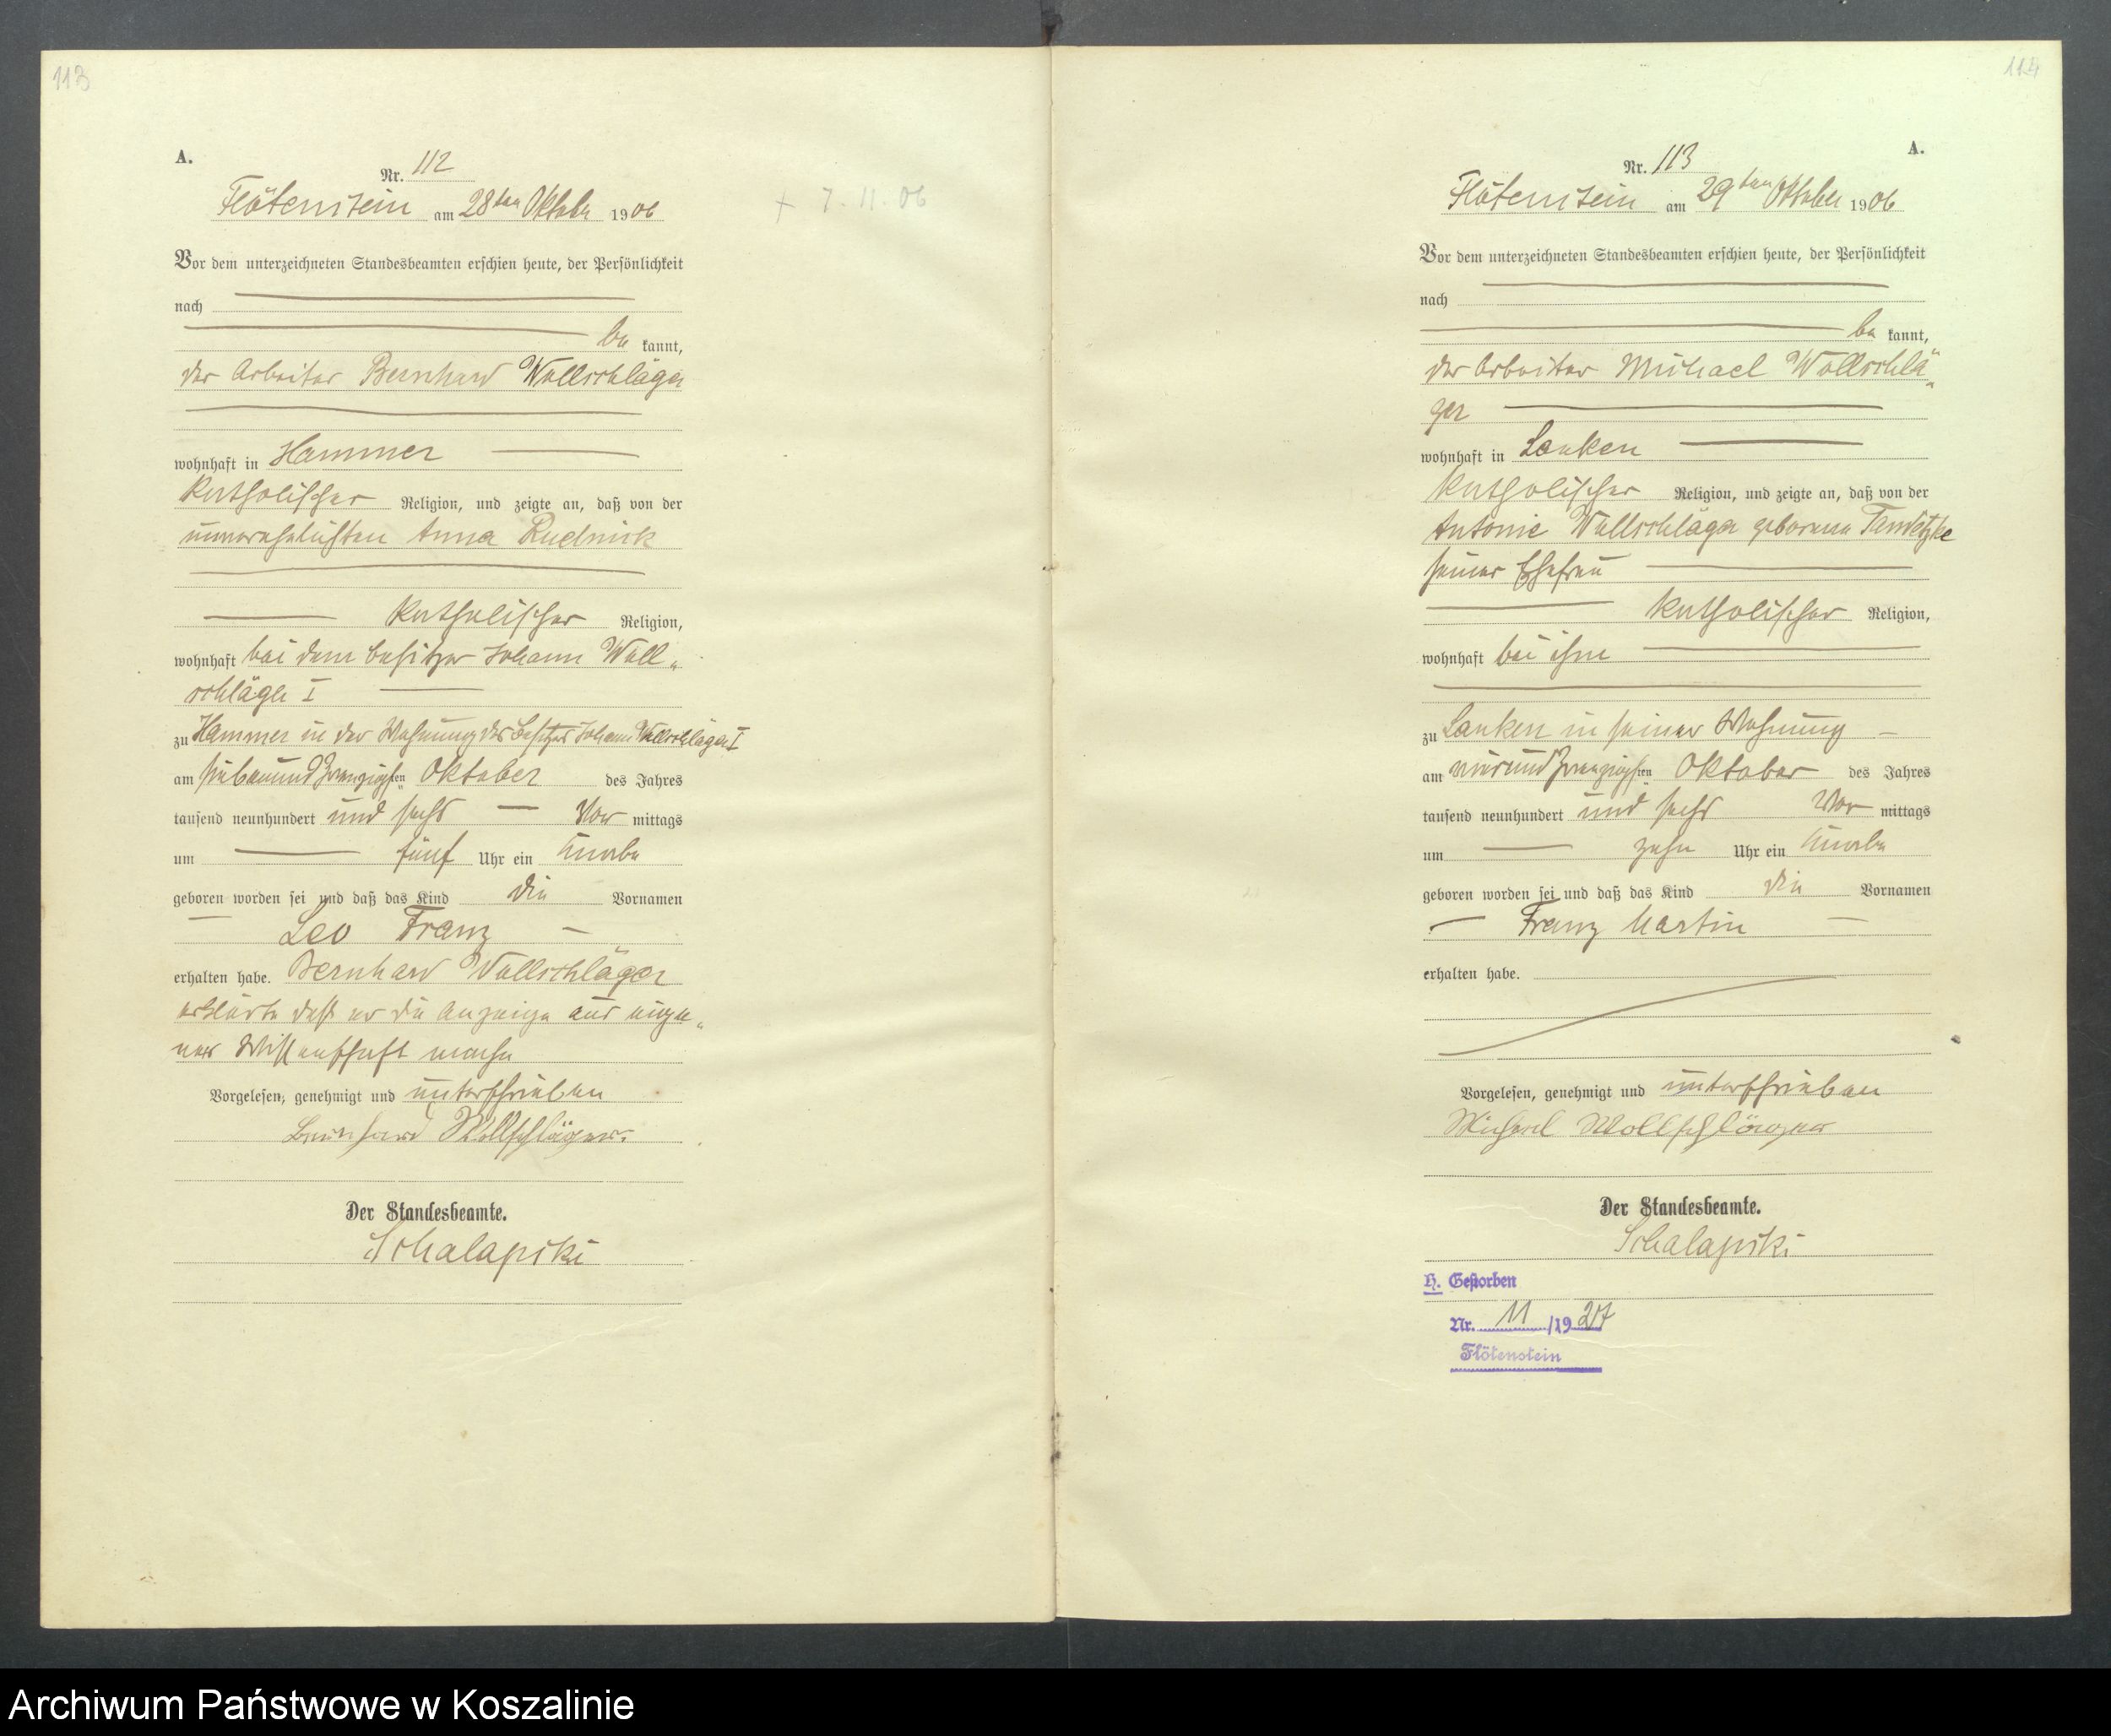 113
A.
Nr. 112
Flötenstein am 28ten Oktober 1906
+ 7. 11. 06
Vor dem unterzeichneten Standesbeamten erschien heute, der Persönlichkeit
nach
be kannt,
der Arbeiter Bernhard Wollschläger
wohnhaft in Hammer
katholischer Religion, und zeigte an, daß von der
unverehelichten Anna Rudnick
katholischer Religion,
wohnhaft bei dem Besitzer Johann Woll„
schläger I
zu Hammer in der Wohnung des Besitzers Johann Wollschläger I
am siebenundzwanzigsten Oktober des Jahres
tausend neunhundert und sechs Vor mittags
um fünf Uhr ein Knabe
geboren worden sei und daß das Kind die Vornamen
Leo Franz
erhalten habe. Bernhard Wollschläger
erklärte daß er die Anzeige aus eige„
ner Wissenschaft mache
Vorgelesen, genehmigt und unterschrieben
Bernhard Wollschläger.
Der Standesbeamte.
Schalapski
114
A.
Nr. 113
Flötenstein am 29ten Oktober 1906
Vor dem unterzeichneten Standesbeamten erschien heute, der Persönlichkeit
nach
be kannt,
der Arbeiter Michael Wollschlä„
ger
wohnhaft in Lanken
katholischer Religion, und zeigte an, daß von der
Antonie Wollschläger geborenen Tandetzke
seiner Ehefrau
katholischer Religion,
wohnhaft bei ihm
zu Lanken in seiner Wohnung
am vierundzwanzigsten Oktober des Jahres
tausend neunhundert und sechs Vor mittags
um zehn Uhr ein Knabe
geboren worden sei und daß das Kind die Vornamen
Franz Martin
erhalten habe.
Vorgelesen, genehmigt und unterschrieben
Michael Wollschläger
Der Standesbeamte.
Schalapski
H. Gestorben
Nr. 11 /1927
Flötenstein
Archiwum Państwowe w Koszalinie